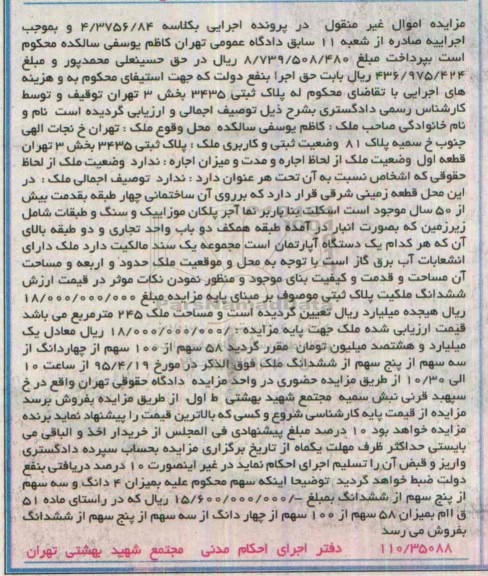 مزایده اموال غیر منقول در پرونده اجرایی بکلاسه ۴/۳۷۵۶/۸۴ و بموجب
اجراییه صادره از شعبه ۱۱ سابق دادگاه عمومی تهران کاظم یوسفی سالکده محکوم
است بپرداخت مبلغ ۸/۷۳۹/۵۰۸/۴۸۰ ریال در حق حسینعلی محمدپور و مبلغ
۴۳۶/۹۷۵/۴۲۴ ریال بابت حق اجرا بنفع دولت که جهت استیفای محکوم به و هزینه
های اجرایی با تقاضای محکوم له پلاک ثبتی ۳۴۳۵ بخش ۳ تهران توقیف و توسط
کارشناس رسمی دادگستری بشرح ذیل توصیف اجمالی و ارزیابی گردیده است نام و
نام خانوادگی صاحب ملک : کاظم یوسفی سالکده محل وقوع ملک : تهران خ نجات الهی
جنوب خ سمیه پلاک ۸۱ وضعیت ثبتی و کاربری ملک : پلاک ثبتی ۳۴۳۵ بخش ۳ تهران
قطعه اول وضعیت ملک از لحاظ اجاره و مدت و میزان اجاره : ندارد وضعیت ملک از لحاظ
حقوقی که اشخاص نسبت به آن تحت هر عنوان دارد : ندارد توصیف اجمالی ملک : در
این محل قطعه زمینی شرقی قرار دارد که برروی آن ساختمانی چهار طبقه بقدمت بیش
از ۵۰ سال موجود است اسکلت بنا باربر نما آجر پلکان موزاییک و سنگ و طبقات شامل
زیرزمین که بصورت انبار در آمده طبقه همکف دو باب واحد تجاری و دو طبقه بالای
آن که هر کدام یک دستگاه آپارتمان است مجموعه یک سند مالکیت دارد ملک دارای
انشعابات آب برق گاز است با توجه به محل و موقعیت ملک حدود و اربعه و مساحت
آن مساحت و قدمت و کیفیت بنای موجود و منظور نمودن نکات موثر در قیمت ارزش
ششدانگ ملکیت پلاک ثبتی موصوف بر مبنای پایه مزایده مبلغ ۱۸/۰۰۰/۰۰۰/۰۰۰
ریال هیجده میلیارد ریال تعیین گردیده است و مساحت ملک ۲۴۵ مترمربع می باشد
قیمت ارزیابی شده ملک جهت پایه مزایده : /۱۸/۰۰۰/۰۰۰/۰۰۰ ریال معادل یک
میلیارد و هشتصد میلیون تومان مقرر گردید ۵۸ سهم از ۱۰۰ سهم از چهاردانگ از
سه سهم از پنج سهم از ششدانگ ملک فوق الذکر در مورخ ۹۵/۴/۱۹ از ساعت ۱۰
الی ۱۰/۳۰ از طریق مزایده حضوری در واحد مزایده دادگاه حقوقی تهران واقع در خ
سپهبد قرنی نبش سمیه مجتمع شهید بهشتی ط اول از طریق مزایده بفروش برسد
مزایده از قیمت پایه کارشناسی شروع و کسی که بالاترین قیمت را پیشنهاد نماید برنده
مزایده خواهد بود ۱۰ درصد مبلغ پیشنهادی فی المجلس از خریدار اخذ و الباقی می
بایستی حداکثر ظرف مهلت یکماه از تاریخ برگزاری مزایده بحساب سپرده دادگستری
واریز و قبض آن را تسلیم اجرای احکام نماید در غیر اینصورت ۱۰ درصد دریافتی بنفع
دولت ضبط خواهد گردید توضیحا اینکه سهم محکوم علیه بمیزان ۴ دانگ و سه سهم
از پنج سهم از ششدانگ بمبلغ -/۱۵/۶۰۰/۰۰۰/۰۰۰ ریال که در راستای ماده ۵۱
ق اام بمیزان ۵۸ سهم از ۱۰۰ سهم از چهار دانگ از سه سهم از پنج سهم از ششدانگ
بفروش می رسد
۱۱۰/۳۵۰۸۸ دفتر اجرای احکام مدنی مجتمع شهید بهشتی تهران